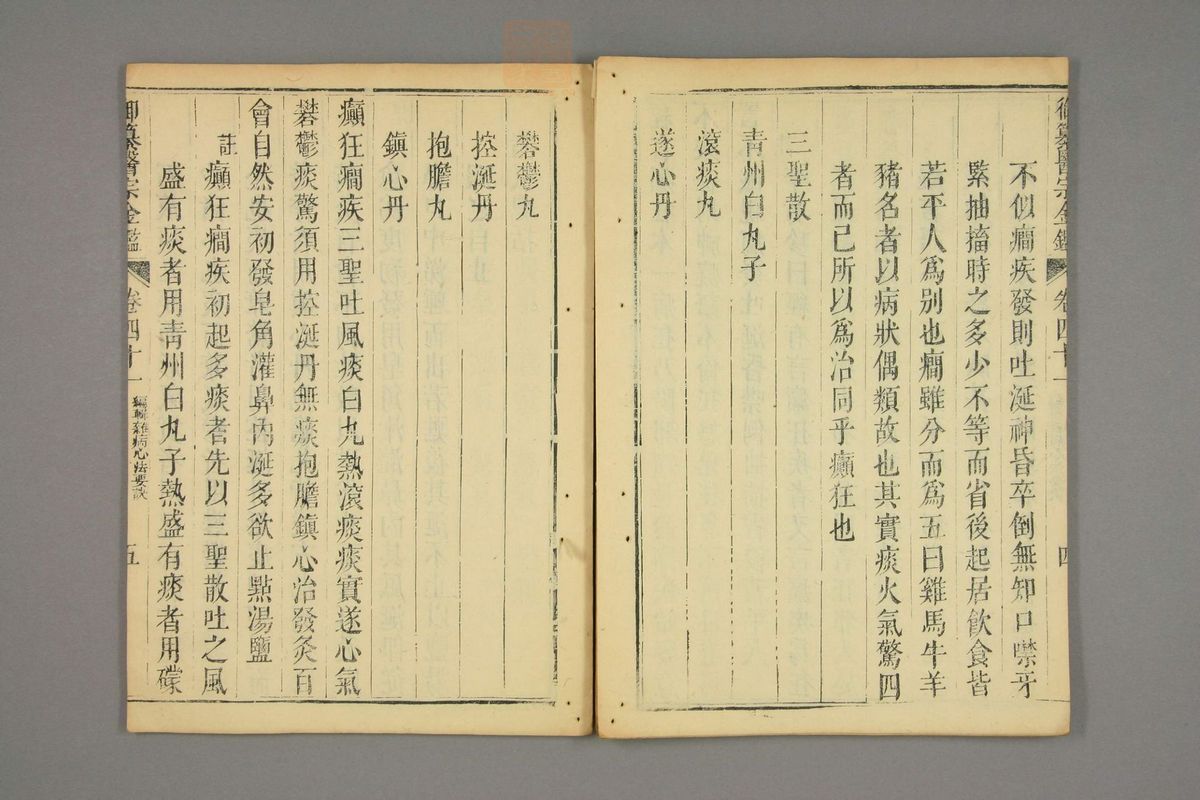 御纂醫宗金鑑 卷四十一 四
不似癎疾發則吐涎神昏卒倒無知口噤牙
緊抽搐時之多少不等而省後起居飲食皆
若平人爲別也癎雖分而爲五曰雞馬牛羊
豬名者以病狀偶類故也其實痰火氣驚四
者而已所以爲治同乎癲狂也
三聖散
青州白丸子
滾痰丸
遂心丹
礬鬱丸
控涎丹
抱膽丸
鎮心丹
癲狂癎疾三聖吐風痰白丸熱滾痰痰實遂心氣
礬鬱痰驚須用控涎丹無痰抱膽鎮心治發灸百
會自然安初發皂角灌鼻內涎多欲止點湯鹽
註癲狂癎疾初起多痰者先以三聖散吐之風
盛有痰者用青州白丸子熱盛有痰者用礞
御纂醫宗金鑑 卷四十一 編輯雜病心法要訣 五